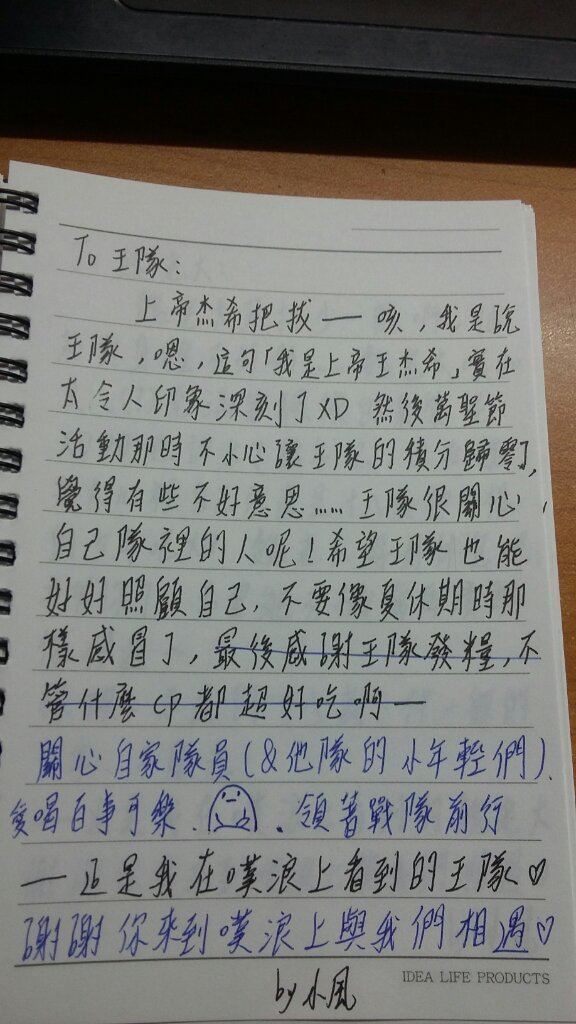 To 王隊：
上帝杰希把拔 — 咳，我是說
王隊，嗯，這句「我是上帝王杰希」實在
太令人印象深刻了XD 然後萬聖節
活動那時不小心讓王隊的積分歸零了，
覺得有些不好意思…… 王隊很關心
自己隊裡的人呢！希望王隊也能
好好照顧自己，不要像夏休期時那
樣感冒了，最後感謝王隊發糧，不
管什麼cp都超好吃啊—
關心自家隊員(&他隊的小年輕們)、
愛喝百事可樂、、領著戰隊前行
— 這是我在噗浪上看到的王隊♡
謝謝你來到噗浪上與我們相遇♡
by 小風
IDEA LIFE PRODUCTS